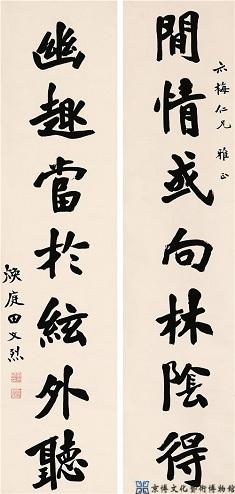 亦梅仁兄 雅正
閒情或向林陰得
幽趣當於絃外聽
煥庭田文烈
京博文化藝術博物館